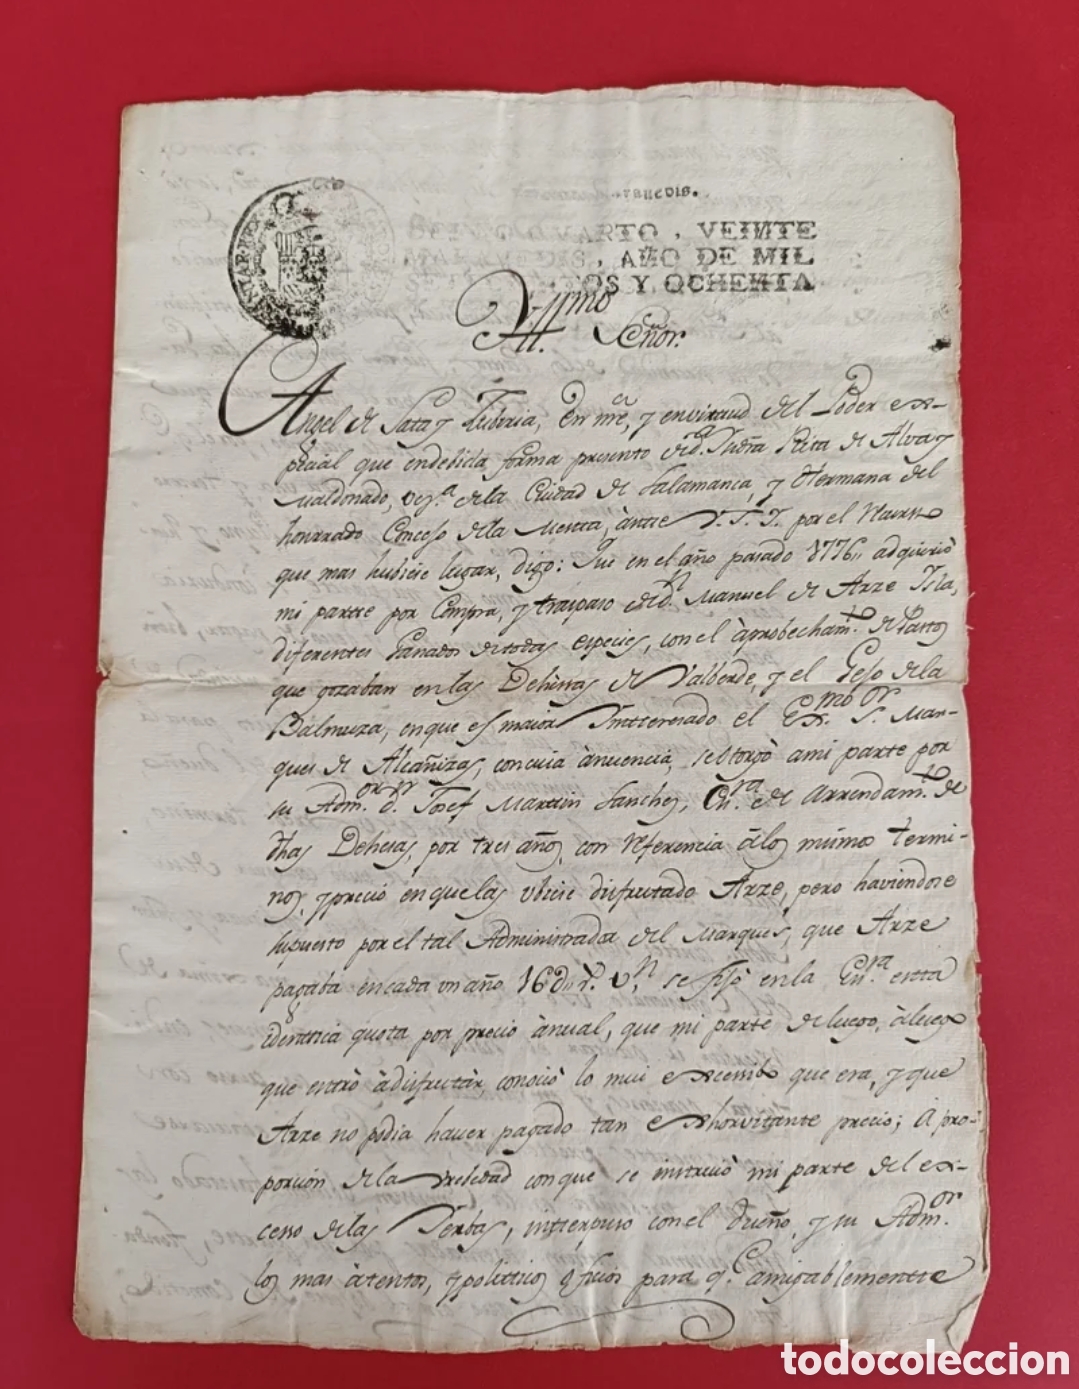 SELLO QVARTO, VEINTE
MARAVEDIS, AÑO DE MIL
TOS Y OCHENTA
Yllmo
Señor.
Angel de Sata y Zubiria, en nre, y en virtud del Poder es-
pecial que en debida forma presento de Dª. Rita de Alva y
Maldonado, vezª. de la Ciudad de Salamanca, y Hermana del
honrrado Concejo de la Mesta, ante V.S.Y. por el
que mas hubiese lugar, digo: Que en el año pasado 1776,, adquirió
mi parte por Compra, y traspaso de Dn. Manuel de Arze Isla,
diferentes Ganados de todas especies, con el àprobechamto. de Pastos
que gozaban en las Dehesas de Valberde, y el Gejo de la
Dalmuza, en que es maior Ynteresado el Exmo. Sor. Mar-
ques de Alcañizas, con cuia ànuencia, se otorgó a mi parte por
su Admor. Dn. Josef Martin Sanchez, Esra. de arrendamto. de
dhas Dehesas, por tres años, con referencia à los mismos termi-
nos, y precio en que las ubiese disfrutado Arze, pero haviendose
supuesto por el tal Administrador del Marques, que Arze
pagaba en cada un año 16 rs. vn. se fijó en la Esra. esta
identica quota por precio ànual, que mi parte de luego, à luego
que entrò à disfrutar, conoció lo mui excesibo que era, y que
Arze no podia haver pagado tan exhorvitante precio; A pro-
porción de la realidad con que se instruió mi parte del ex-
ceso de las Yerbas, interpuso con el Dueño, y su Admor.
los mas àtentos, y politicos oficios para qe. amigablemente
todocoleccion